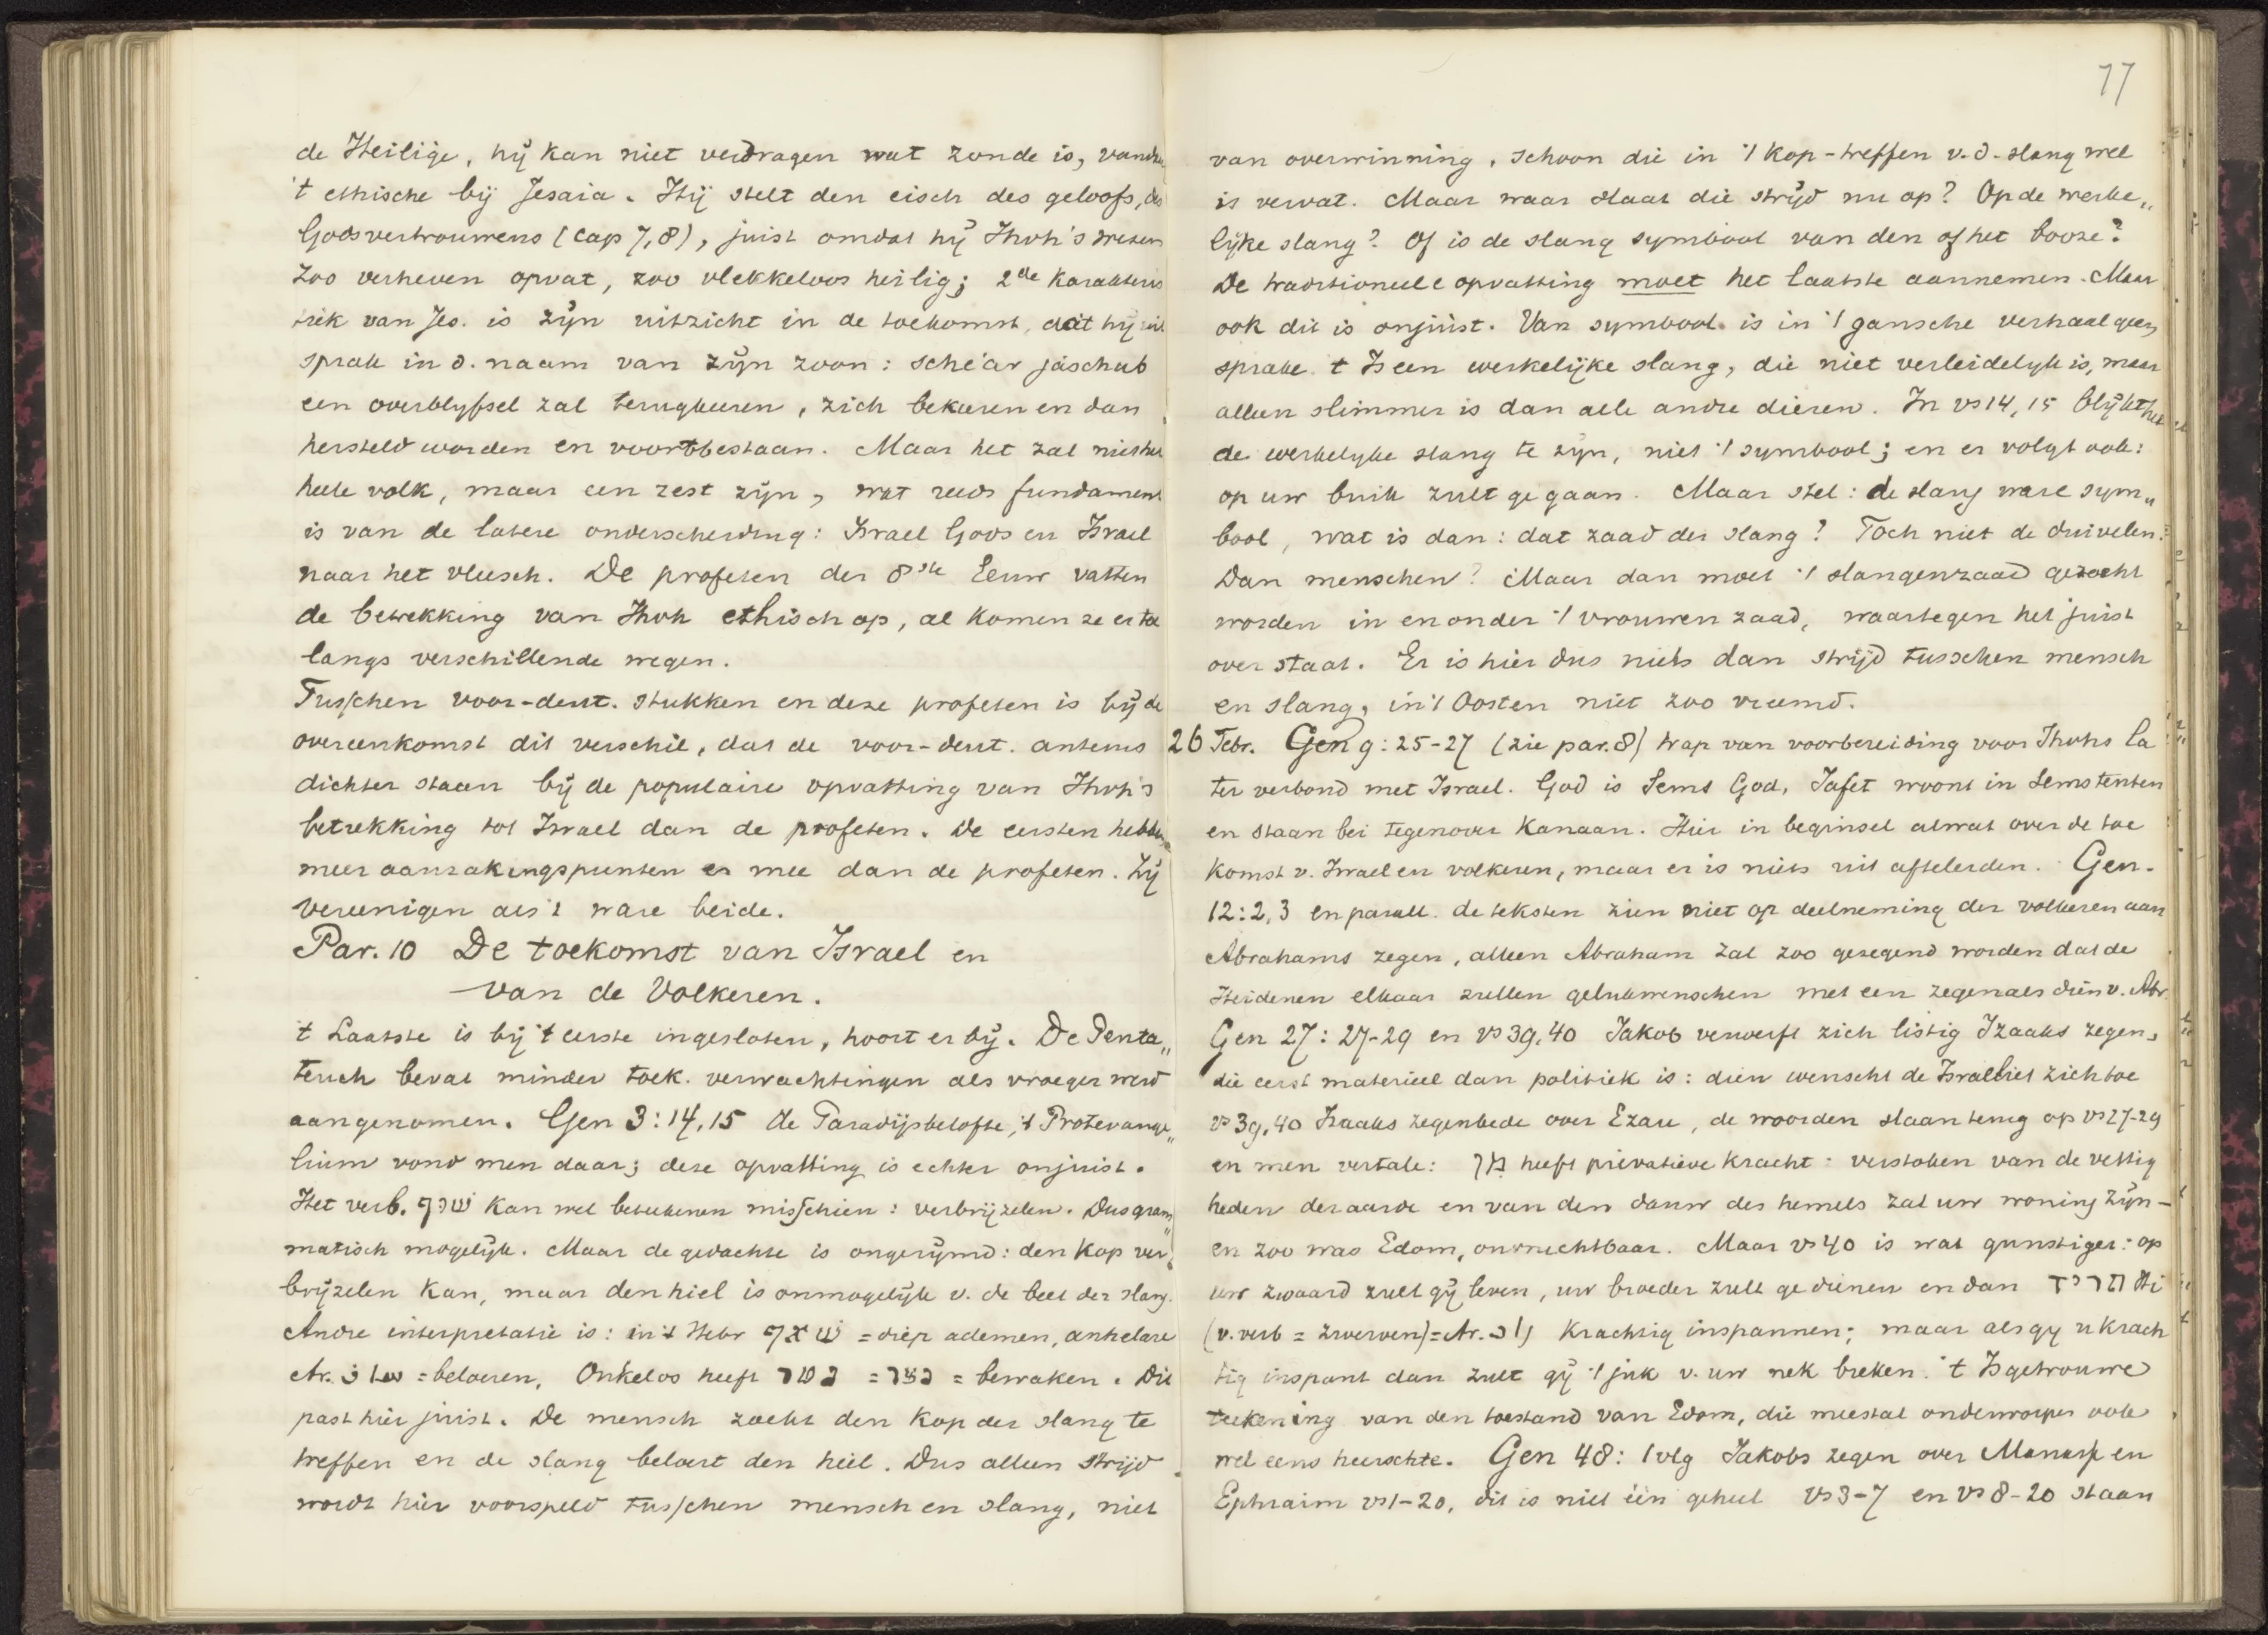 de Heilige, hij kan niet verdragen wat zonde is, vandaar
't ethische bij Jesaia. Hij stelt den eisch des geloofs, des
Godsvertrouwens (cap 7,8), juist omdat hij Jhvh's wezen
zoo verheven opvat, zoo vlekkeloos heilig; 2de Karakteris
tiek van Jes. is zijn uitzicht in de toekomst, dat hij uit
sprak in d. naam van zijn zoon: sche'ar jaschub
een overblyfsel zal terugkeeren, zich bekeeren en dan
hersteld worden en voortbestaan. Maar het zal niet het
heele volk, maar een rest zijn, wat reeds fundament
is van de latere onderscheiding: Israel Gods en Israel
naar het vleesch. De profeten der 8ste Eeuw vatten
de betrekking van Jhvh ethisch op, al komen ze er toe
langs verschillende wegen.
Tusschen voor-deut. stukken en deze profeten is bij de
overeenkomst dit verschil, dat de voor-deut. auteurs
dichter staan bij de populaire opvatting van Jhvh's
betrekking tot Israel dan de profeten. De eersten hebben
meer aanrakingspunten er mee dan de profeten. Zij
vereenigen als 't ware beide.
Par. 10 De toekomst van Israel en
van de Volkeren.
't Laatste is bij 't eerste ingesloten, hoort er bij. De Penta„
teuch bevat minder toek. verwachtingen als vroeger werd
aangenomen. Gen 3:14,15 de Paradijsbelofte, 't Protevange„
lium vond men daar; deze opvatting is echter onjuist.
Het verb. שוף kan wel beteekenen misschien: verbrijzelen. Dus gram„
matisch mogelijk. Maar de gedachte is ongerijmd: den kop ver„
brijzelen kan, maar den hiel is onmogelijk v. de beet der slang.
Andre interpretatie is: in 't Hebr שאף = diep ademen, anhelare
Ar. = beloeren, Onkelos heeft נטר = נצר = bewaken. Dit
past hier juist. De mensch zoekt den kop der slang te
treffen en de slang beloert den hiel. Dus alleen strijd
wordt hier voorspeld tusschen mensch en slang, niet
77
van overwinning, schoon die in 't kop-treffen v. d. slang wel
is vervat. Maar waar slaat die strijd nu op? Op de werke„
lijke slang? Of is de slang symbool van den of het booze?
De traditioneele opvatting moet het laatste aannemen. Maar
ook dit is onjuist. Van symbool is in 't gansche verhaal geen
sprake. 't Is een werkelijke slang, die niet verleidelijk is, maar
alleen slimmer is dan alle andre dieren. In vs 14, 15 blijkt het
de werkelyke slang te zijn, niet 't symbool; en er volgt ook:
op uw buik zult ge gaan. Maar stel: de slang ware sym„
bool, wat is dan: dat zaad der slang? Toch niet de duivelen.
Dan menschen? Maar dan moet 't slangenzaad gezocht
worden in en onder 't vrouwen zaad, waartegen het juist
over staat. Er is hier dus niets dan strijd tusschen mensch
en slang, in 't Oosten niet zoo vreemd.
26 Febr. Gen 9:25-27 (zie par. 8) trap van voorbereiding voor Jhvhs la
ter verbond met Israel. God is Sems God, Jafet woont in Sems tenten
en staan bei tegenover Kanaan. Hier in beginsel alwat over de toe
komst v. Israel en volkeren, maar er is niets uit afteleiden. Gen.
12:2,3 en parall. de teksten zien niet op deelneming der volkeren aan
Abrahams zegen, alleen Abraham zal zoo gezegend worden dat de
Heidenen elkaar zullen gelukwenschen met een zegen als dien v. Abr.
Gen 27:27-29 en vs 39,40 Jakob verwerft zich listig Izaaks zegen,
die eerst materieel dan politiek is: dien wenscht de Israeliet zich toe
vs 39.40 Izaaks zegenbede over Ezau, de woorden slaan terug op vs 27-29
en men vertale: מן heeft privatieve kracht: verstoken van de vettig
heden der aarde en van den dauw des hemels zal uw woning zijn -
en zoo was Edom, onvruchtbaar. Maar vs 40 is wat gunstiger: op
uw zwaard zult gij leven, uw broeder zult ge dienen en dan תריד Hi
(v. verb = zwerven) = Ar. krachtig inspannen; maar als gy u krach
tig inspant dan zult gij 't juk v. uw nek breken. 't Is getrouwe
teekening van den toestand van Edom, die meestal onderworpen ook
wel eens heerschte. Gen 48: 1 vlg Jakobs zegen over Manasse en
Ephraim vs 1-20, dit is niet één geheel vs 3-7 en vs 8-20 staan